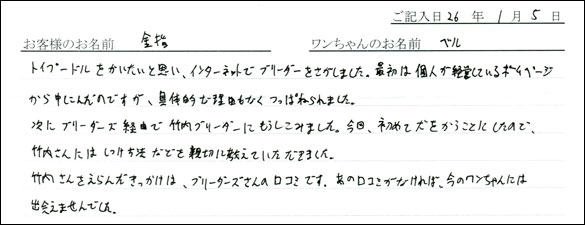 ご記入日 26 年 1 月 5 日
お客様のお名前 金指 ワンちゃんのお名前 ベル
トイプードルをかいたいと思い、インターネットでブリーダーをさがしました。最初は個人が経営しているホームページ
から申しこんだのですが、具体的な理由もなくつっぱねられました。
次にブリーダーズ経由で竹内ブリーダーにもうしこみました。今回、初めて犬をかうことにしたので、
竹内さんにはしつけ方法などを親切に教えていただきました。
竹内さんをえらんだきっかけは、ブリーダーズさんの口コミです。あの口コミがなければ、今のワンちゃんには
出会えませんでした。